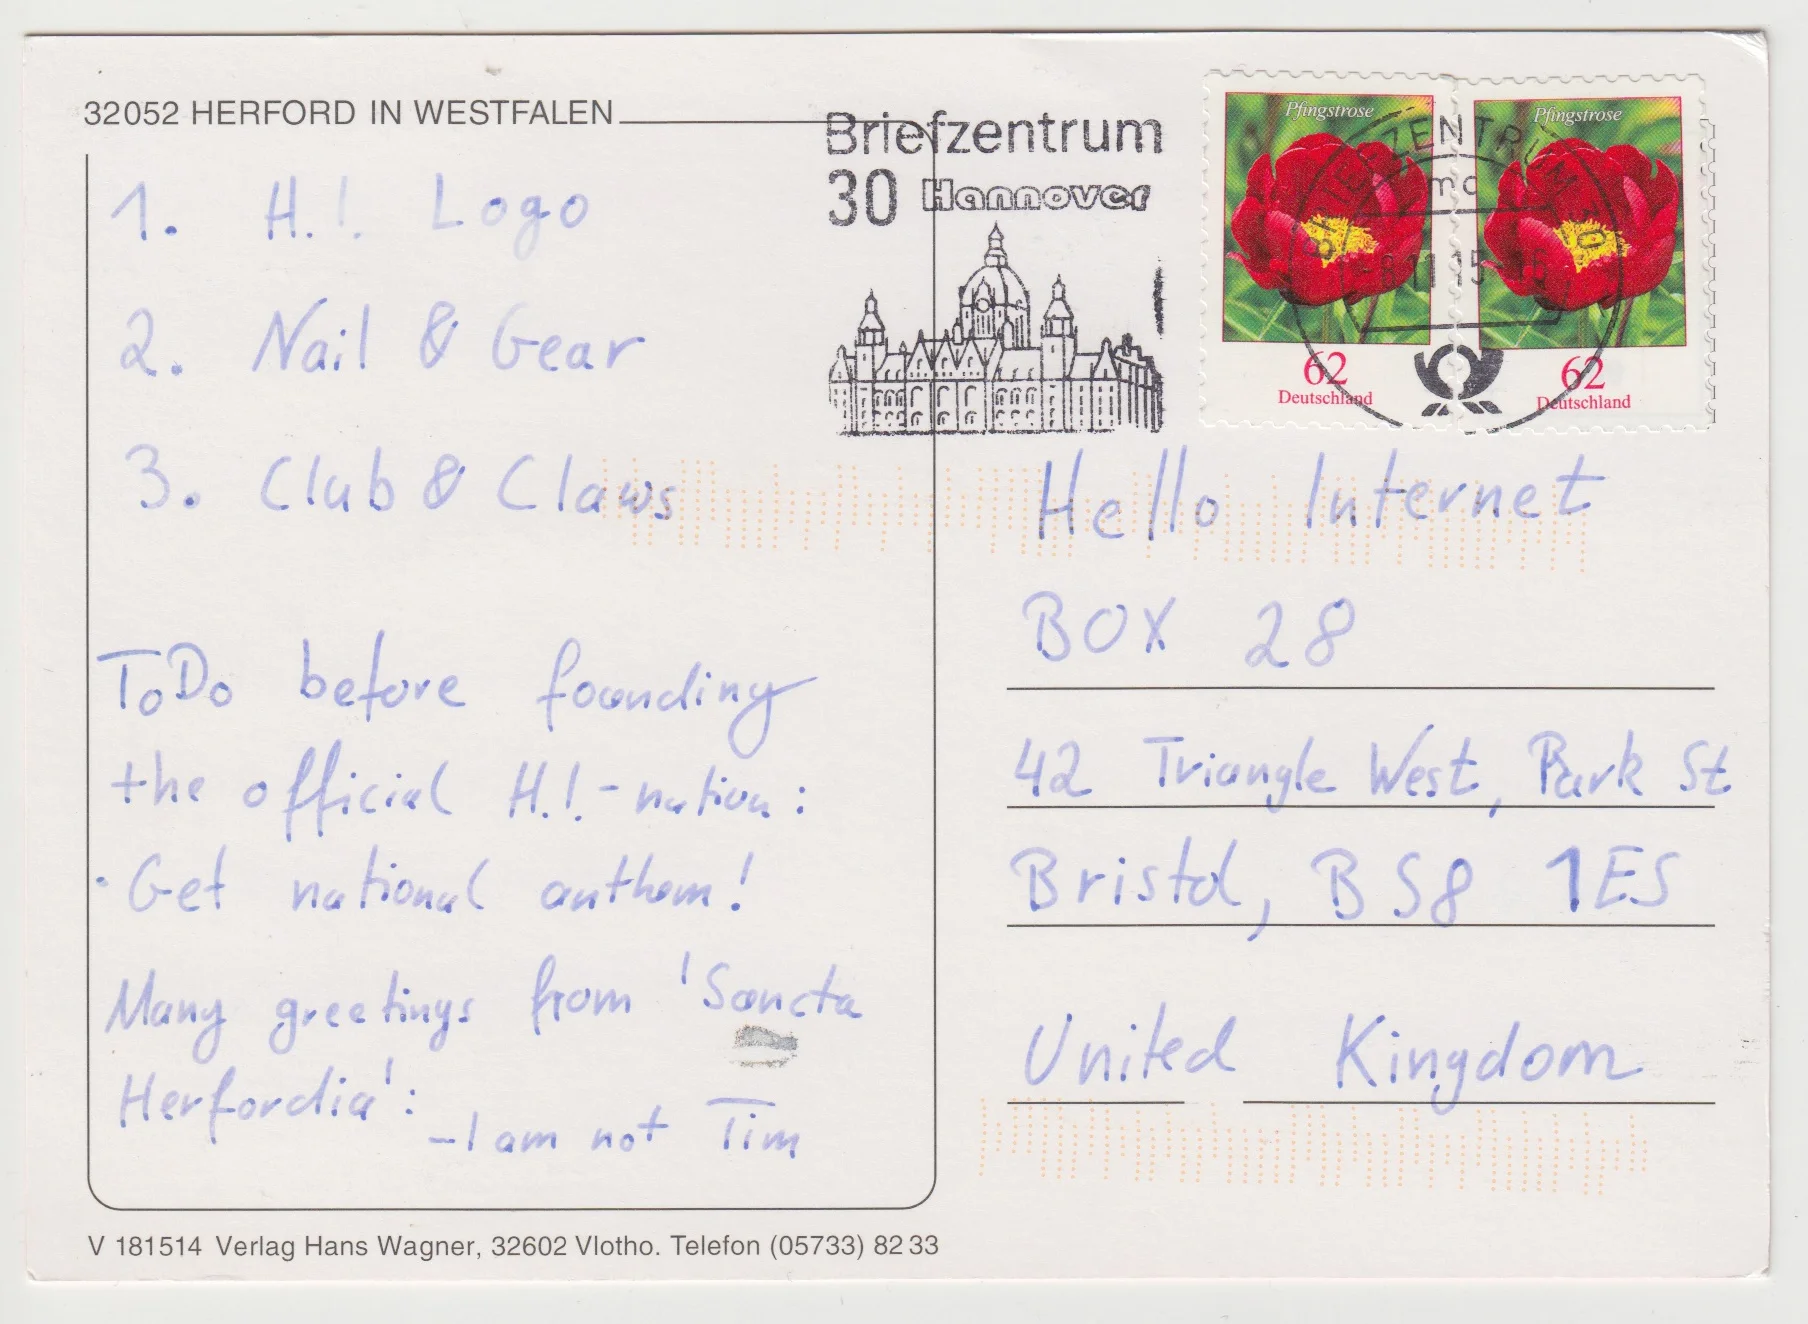 32052 HERFORD IN WESTFALEN
1. H.I. Logo
2. Nail & Gear
3. Club & Claws
ToDo before founding
the official H.I.-nation:
· Get national anthem!
Many greetings from 'Sancta
Herfordia':
-I am not Tim
V 181514 Verlag Hans Wagner, 32602 Vlotho. Telefon (05733) 82 33
Briefzentrum
30 Hannover
Pfingstrose
62
Deutschland
Pfingstrose
62
Deutschland
Hello Internet
BOX 28
42 Triangle West, Park St
Bristol, BS8 1ES
United Kingdom